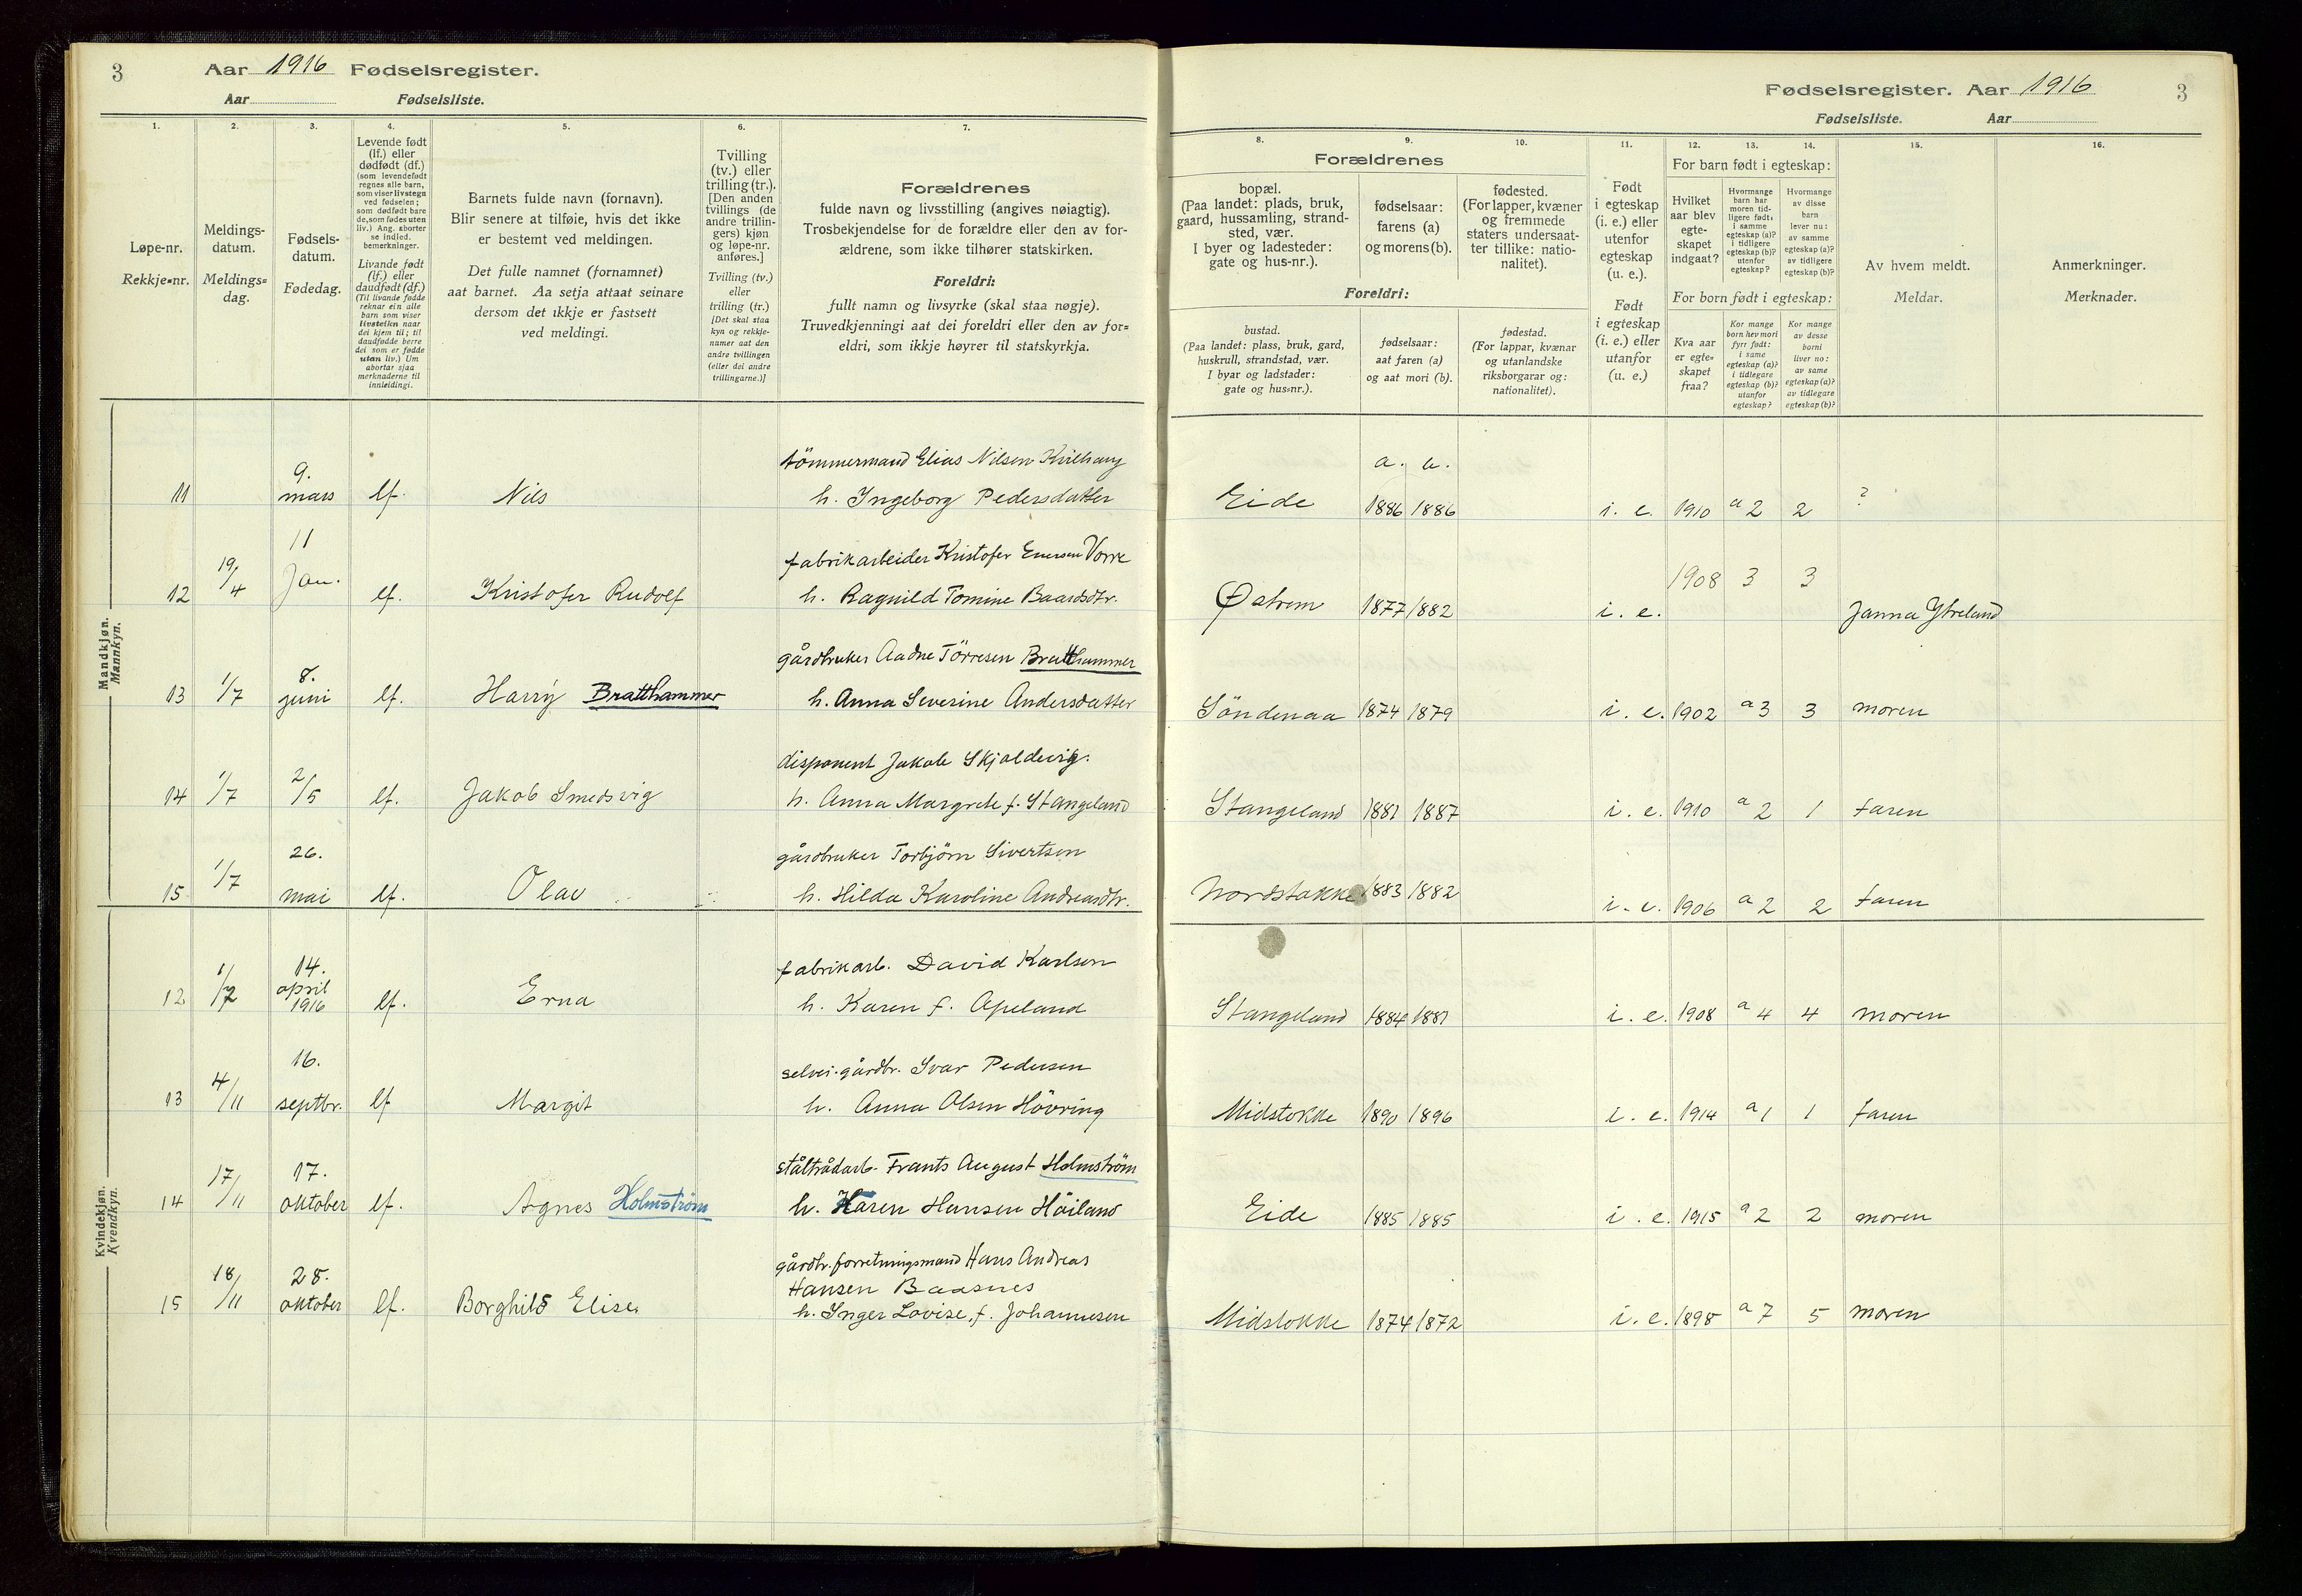 3
Aar 1916 Fødselsregister.
Aar Fødselsliste.
1.
2.
3.
4.
5.
6.
7.
Løpe-nr.
Rekkje=nr.
Meldings-
datum.
Meldings=
dag.
Fødsels-
datum.
Fødedag.
Levende født
(lf.) eller
dødfødt (df.)
(som levendefødt
regnes alle barn,
som viser livstegn
ved fødselen;
som dødfødt bare
de, som fødes uten
liv.) Ang. aborter
se indled.
bemerkninger.
Livande født
(lf.) eller
daudfødt (df.)
(Til livande fødde
reknar ein alle
barn som viser
livsteikn naar
dei kjem til; til
daudfødde berre
dei som er fødde
utan liv.) Um
abortar sjaa
merknaderne til
innleidingi.
Barnets fulde navn (fornavn).
Blir senere at tilføie, hvis det ikke
er bestemt ved meldingen.
Det fulle namnet (fornamnet)
aat barnet. Aa setja attaat seinare
dersom det ikkje er fastsett
ved meldingi.
Tvilling
(tv.) eller
trilling (tr.).
[Den anden
tvillings (de
andre trillin-
gers) kjøn
og løpe-nr.
anføres.]
Tvilling (tv.)
eller
trilling (tr.)
[Det skal staa
kyn og rekkje-
numer aat den
andre tvillingen
(eller dei andre
trillingarne.)]
Forældrenes
fulde navn og livsstilling (angives nøiagtig).
Trosbekjendelse for de forældre eller den av for-
ældrene, som ikke tilhører statskirken.
Foreldri:
fullt namn og livsyrke (skal staa nøgje).
Truvedkjenningi aat dei foreldri eller den av for=
eldri, som ikkje høyrer til statskyrkja.
Mandkjøn.
Mannkyn.
11 9. mars lf. Nils tömmermand Elias Nilsen Kvilhaug
h. Ingeborg Pedersdatter
12 19/4 11 Jan. lf. Kristofer Rudolf fabrikarbeider Kristofer Enersen Vorre
h. Ragnild Tomine Baardsdtr.
13 1/7 8. juni lf. Harry Bratthammer gårdbruker Aadne Törresen Bratthammer
h. Anna Severine Andersdatter
14 1/7 2/5 lf. Jakob Smedsvig disponent Jakob Skjoldevig.
h. Anna Margrete f. Stangeland
15 1/7 26. mai lf. Olav gårdbruker Torbjörn Sivertsen
h. Hilda Karoline Andreasdtr.
Kvindekjøn.
Kvendkyn.
12 1/7 14. april 1916 lf. Erna fabrikarb. David Karlsen
h. Karen f. Apeland
13 4/11 16. septbr. lf Margit selvei.gårdbr. Ivar Pedersen
h. Anna Olsen Hövring
14 17/11 17. oktober lf. Agnes Holmström ståltrådarb. Frants August Holmström
h. Karen Hansen Höiland
15 18/11 28. oktober lf. Borghild Elise. gårdbr. forretningsmand Hans Andreas
Hansen Baasnes
h. Inger Lovise, f. Johannesen
Fødselsregister. Aar 1916
3
Fødselsliste. Aar
8.
9.
10.
11.
12.
13.
14.
15.
16.
Forældrenes
bopæl.
(Paa landet: plads, bruk,
gaard, hussamling, strand-
sted, vær.
I byer og ladesteder:
gate og hus-nr.).
fødselsaar:
farens (a)
og morens (b).
fødested.
(For lapper, kvæner
og fremmede
staters undersaat-
ter tillike: natio-
nalitet).
Foreldri:
bustad.
(Paa landet: plass, bruk, gard,
huskrull, strandstad, vær.
I byar og ladstader:
gate og hus=nr.).
fødselsaar:
aat faren (a)
og aat mori (b).
fødestad.
(For lappar, kvænar
og utanlandske
riksborgarar og:
nationalitet).
Født
i egteskap
(i. e.) eller
utenfor
egteskap
(u. e.).
Født
i egteskap
(i. e.) eller
utanfor
(u. e.)
For barn født i egteskap:
Hvilket
aar blev
egte-
skapet
indgaat?
Hvormange
barn har
moren tid-
ligere født:
i samme
egteskap (a)?
i tidligere
egteskap (b)?
utenfor
egteskap?
Hvormange
av disse
barn
lever nu:
av samme
egteskap (a)?
av tidligere
egteskap (b)?
For born født i egteskap:
Kva aar
er egte=
skapet
fraa?
Kor mange
born hev mori
fyrr født:
i same
egteskap (a)?
i tidlegare
egteskap (b)?
utanfor
egteskap?
Kor mange
av desse
borni
liver no:
av same
egteskap (a)?
av tidlegare
egteskap (b)?
Av hvem meldt.
Meldar.
Anmerkninger.
Merknader.
a. b.
Eide 1886 1886 i. e. 1910 a 2 2 ?
Østrem 1877 1882 i. e. 1908 3 3 Janna Ytreland
Söndenaa 1874 1879 i. e. 1902 a 3 3 moren
Stangeland 1881 1887 i. e. 1910 a 2 1 faren
Nordstokke 1883 1882 i. e. 1906 a 2 2 faren
Stangeland 1884 1881 i. e. 1908 a 4 4 moren
Midstokke 1890 1896 i. e. 1914 a 1 1 faren
Eide 1885 1885 i. e. 1915 a 2 2 moren
Midstokke 1874 1872 i. e. 1898 a 7 5 moren